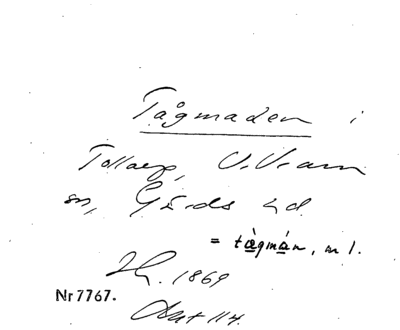 Tågmaden i
Tollarp, V. Vram
sn, Gärds hd.
= tågmán, m l.
1869
Nr 7767.
114.